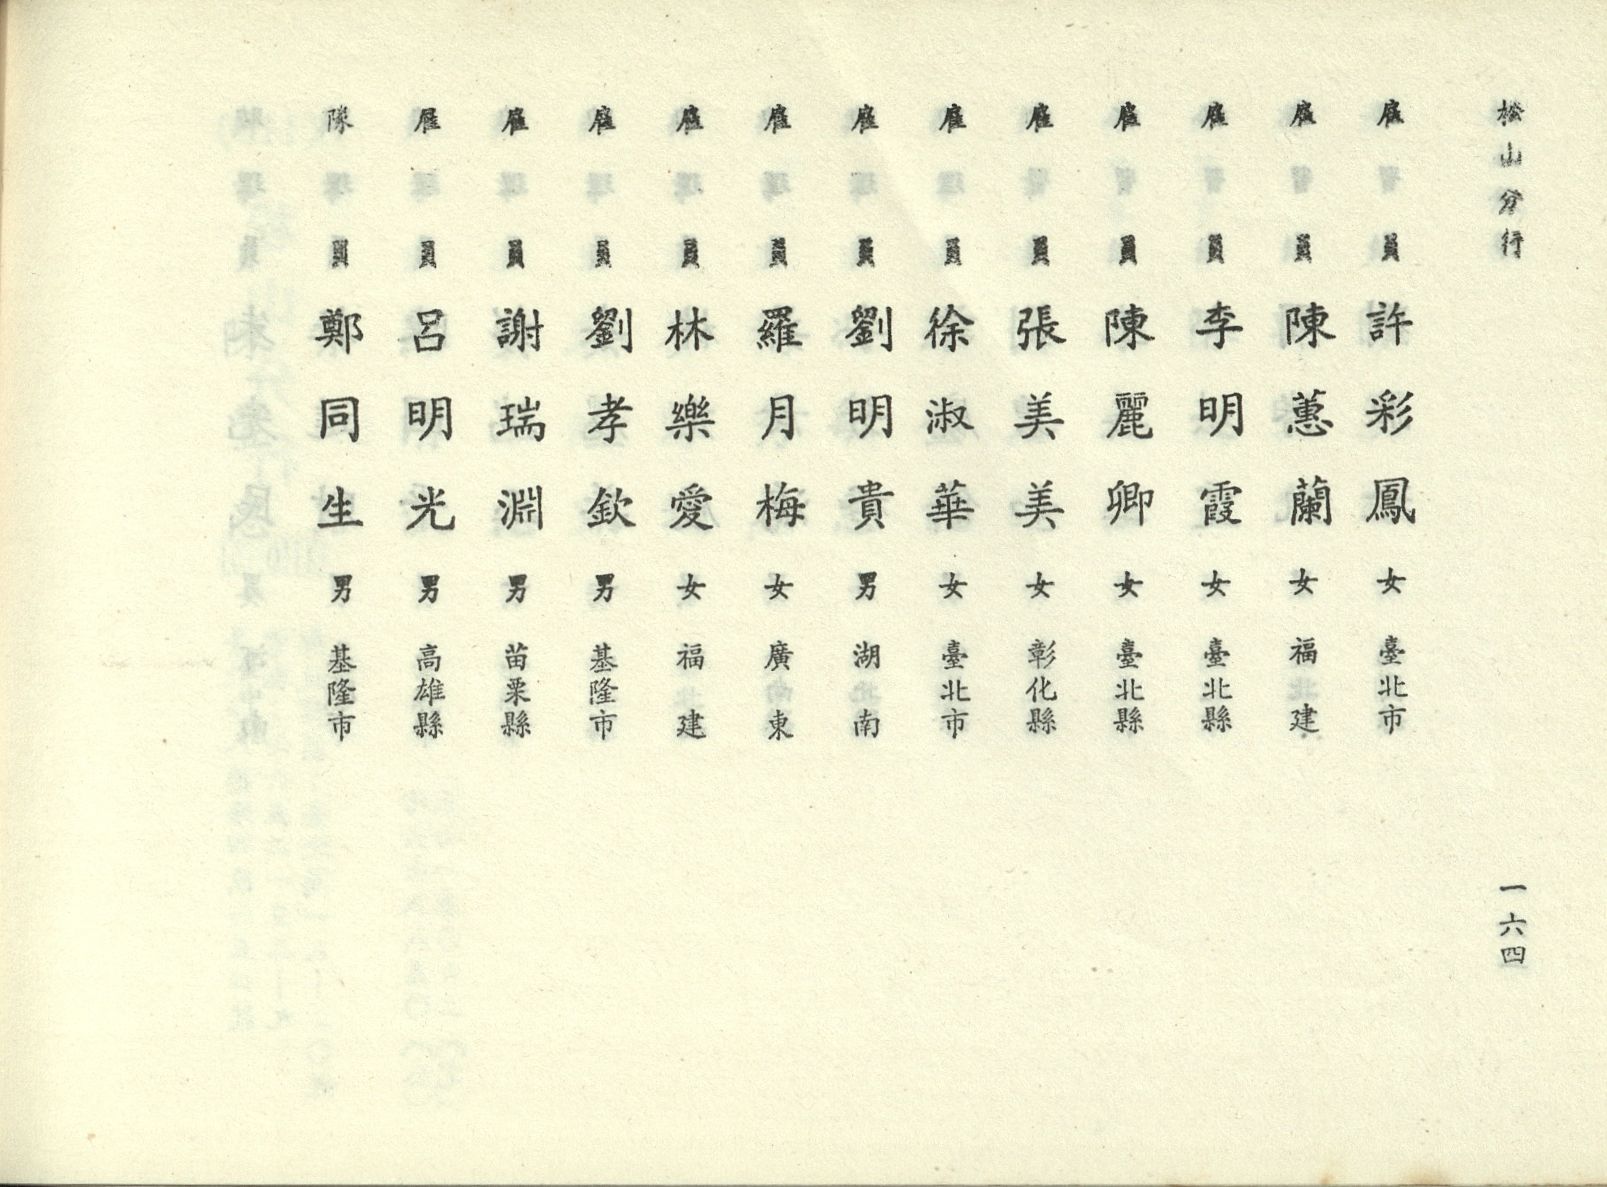 松山分行
一六四
雇員 許彩鳳 女 臺北市
雇員 陳蕙蘭 女 福建
雇員 李明霞 女 臺北縣
雇員 陳麗卿 女 臺北縣
雇員 張美美 女 彰化縣
雇員 徐淑華 女 臺北市
雇員 劉明貴 男 湖南
雇員 羅月梅 女 廣東
雇員 林樂愛 女 福建
雇員 劉孝欽 男 基隆市
雇員 謝瑞淵 男 苗栗縣
雇員 呂明光 男 高雄縣
隊員 鄭同生 男 基隆市